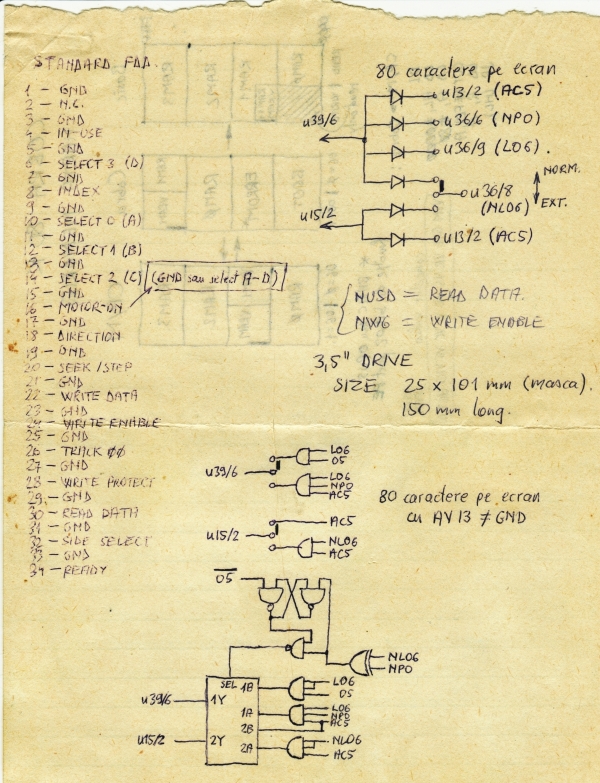 STANDARD FDD.
1 - GND
2 - N.C.
3 - GND
4 - IN-USE
5 - GND
6 - SELECT 3 (D)
7 - GND
8 - INDEX
9 - GND
10 - SELECT 0 (A)
11 - GND
12 - SELECT 1 (B)
13 - GND
14 - SELECT 2 (C) (GND sau select A-D)
15 - GND
16 - MOTOR-ON
17 - GND
18 - DIRECTION
19 - GND
20 - SEEK/STEP
21 - GND
22 - WRITE DATA
23 - GND
24 - WRITE ENABLE
25 - GND
26 - TRACK ØØ
27 - GND
28 - WRITE PROTECT
29 - GND
30 - READ DATA
31 - GND
32 - SIDE SELECT
33 - GND
34 - READY
80 caractere pe ecran
u13/2 (AC5)
u39/6
u36/6 (NPO)
u36/9 (LO6).
u36/8 (NLO6)
NORM.
EXT.
u15/2
u13/2 (AC5)
NUSD = READ DATA.
NWG = WRITE ENABLE
3,5" DRIVE
SIZE 25 x 101 mm (masca).
150 mm long.
u39/6
LO6
D5
LO6
NPO
AC5
80 caractere pe ecran
cu AV13 ≠ GND
u15/2
AC5
NLO6
AC5
D5
NLO6
NPO
SEL
u39/6
1Y
1B
LO6
D5
1A
LO6
NPO
AC5
2B
u15/2
2Y
2A
NLO6
AC5